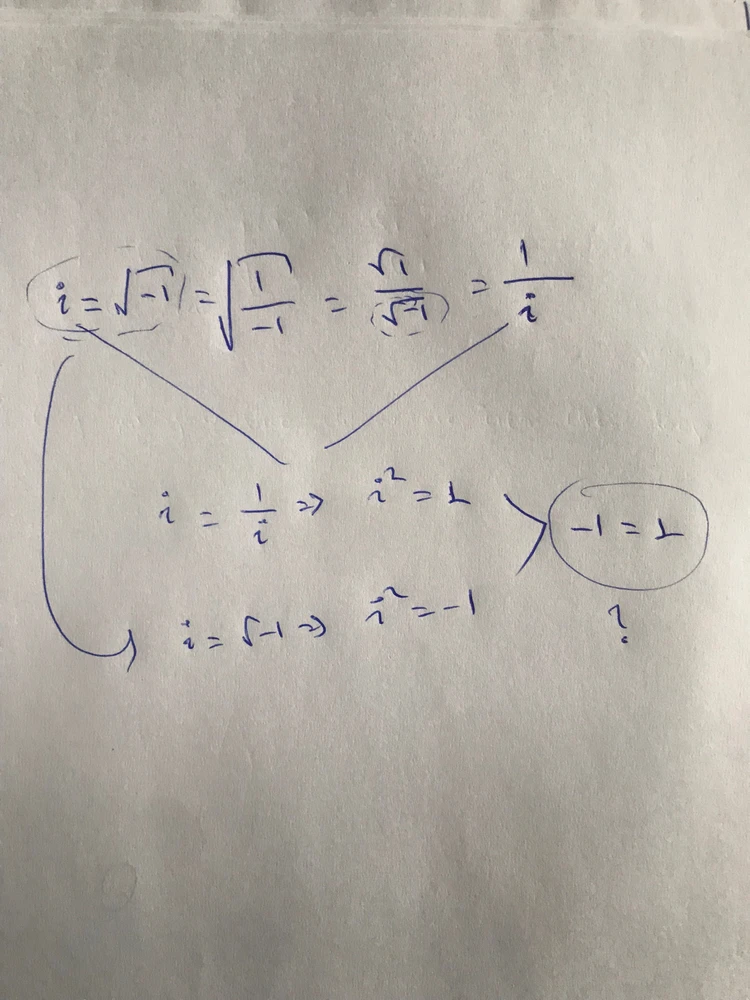 i = √-1 = √(1/-1) = √1/√-1 = 1/i
i = 1/i ⇒ i² = 1
-1 = 1
i = √-1 ⇒ i² = -1
?